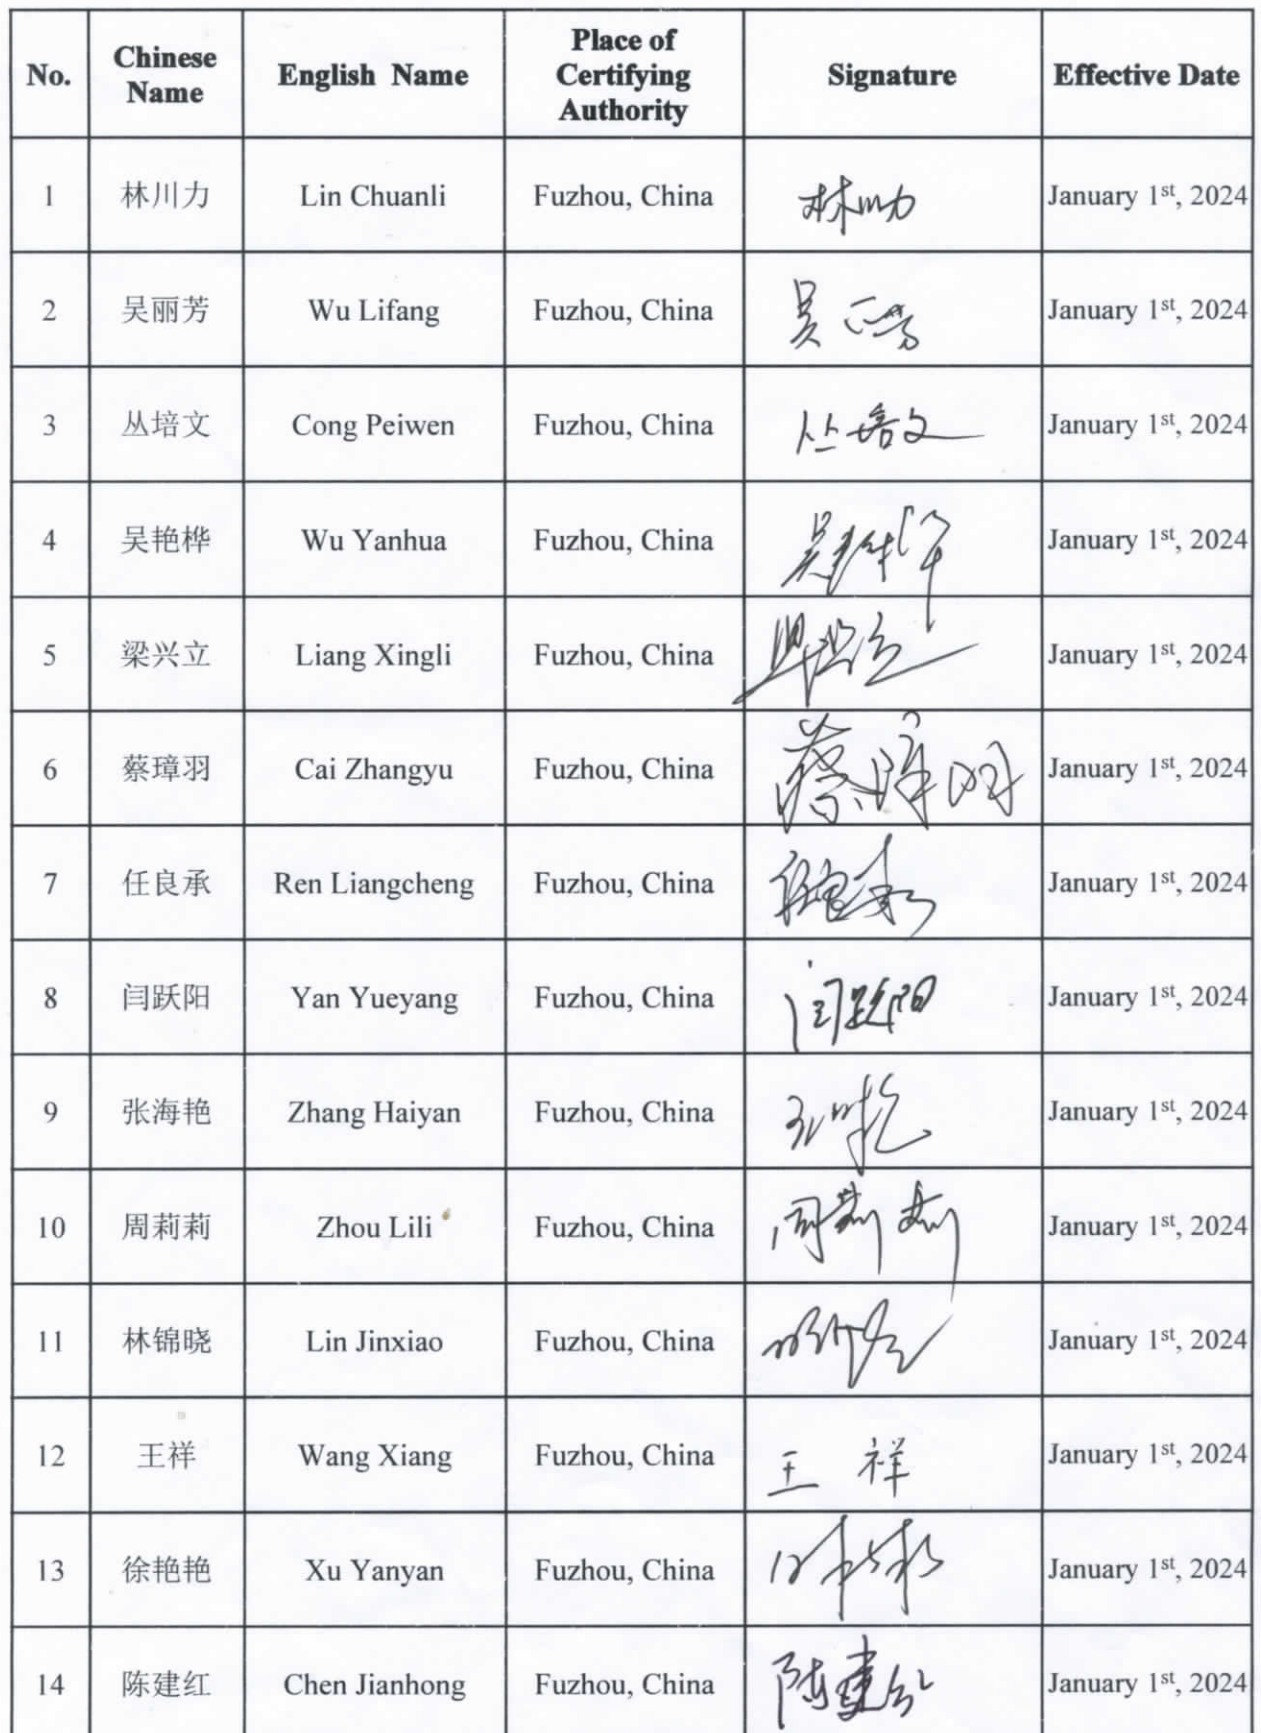 No. Chinese Name English Name Place of Certifying Authority Signature Effective Date
1 林川力 Lin Chuanli Fuzhou, China 林川力 January 1st, 2024
2 吴丽芳 Wu Lifang Fuzhou, China 吴丽芳 January 1st, 2024
3 丛培文 Cong Peiwen Fuzhou, China 丛培文 January 1st, 2024
4 吴艳桦 Wu Yanhua Fuzhou, China January 1st, 2024
5 梁兴立 Liang Xingli Fuzhou, China January 1st, 2024
6 蔡璋羽 Cai Zhangyu Fuzhou, China 蔡璋羽 January 1st, 2024
7 任良承 Ren Liangcheng Fuzhou, China January 1st, 2024
8 闫跃阳 Yan Yueyang Fuzhou, China 闫跃阳 January 1st, 2024
9 张海艳 Zhang Haiyan Fuzhou, China January 1st, 2024
10 周莉莉 Zhou Lili Fuzhou, China 周莉莉 January 1st, 2024
11 林锦晓 Lin Jinxiao Fuzhou, China January 1st, 2024
12 王祥 Wang Xiang Fuzhou, China 王祥 January 1st, 2024
13 徐艳艳 Xu Yanyan Fuzhou, China January 1st, 2024
14 陈建红 Chen Jianhong Fuzhou, China 陈建红 January 1st, 2024